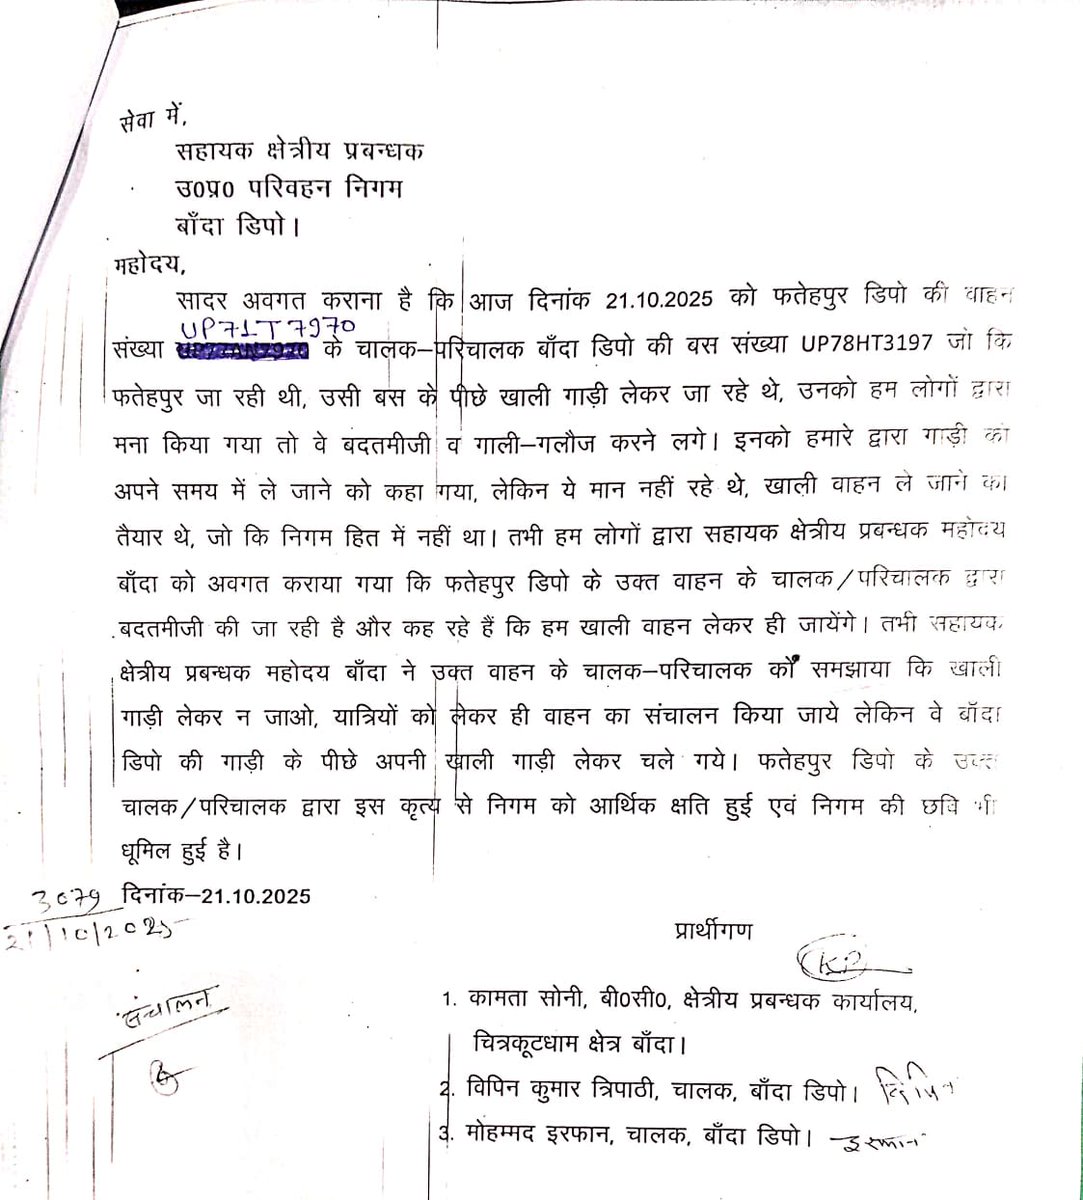 सेवा में,
सहायक क्षेत्रीय प्रबन्धक
उ0प्र0 परिवहन निगम
बाँदा डिपो।
महोदय,
सादर अवगत कराना है कि आज दिनांक 21.10.2025 को फतेहपुर डिपो की वाहन
UP71T7970
संख्या के चालक–परिचालक बाँदा डिपो की बस संख्या UP78HT3197 जो कि
फतेहपुर जा रही थी, उसी बस के पीछे खाली गाड़ी लेकर जा रहे थे, उनको हम लोगों द्वारा
मना किया गया तो वे बदतमीजी व गाली–गलौज करने लगे। इनको हमारे द्वारा गाड़ी को
अपने समय में ले जाने को कहा गया, लेकिन ये मान नहीं रहे थे, खाली वाहन ले जाने का
तैयार थे, जो कि निगम हित में नहीं था। तभी हम लोगों द्वारा सहायक क्षेत्रीय प्रबन्धक महोदय
बाँदा को अवगत कराया गया कि फतेहपुर डिपो के उक्त वाहन के चालक/परिचालक द्वारा
बदतमीजी की जा रही है और कह रहे हैं कि हम खाली वाहन लेकर ही जायेंगे। तभी सहायक
क्षेत्रीय प्रबन्धक महोदय बाँदा ने उक्त वाहन के चालक–परिचालक को समझाया कि खाली
गाड़ी लेकर न जाओ, यात्रियों को लेकर ही वाहन का संचालन किया जाये लेकिन वे बाँदा
डिपो की गाड़ी के पीछे अपनी खाली गाड़ी लेकर चले गये। फतेहपुर डिपो के उक्त
चालक/परिचालक द्वारा इस कृत्य से निगम को आर्थिक क्षति हुई एवं निगम की छवि भी
धूमिल हुई है।
3079 दिनांक–21.10.2025
21/10/2025
प्रार्थीगण
संचालन
1. कामता सोनी, बी0सी0, क्षेत्रीय प्रबन्धक कार्यालय,
चित्रकूटधाम क्षेत्र बाँदा।
2. विपिन कुमार त्रिपाठी, चालक, बाँदा डिपो। विपिन
3. मोहम्मद इरफान, चालक, बाँदा डिपो।